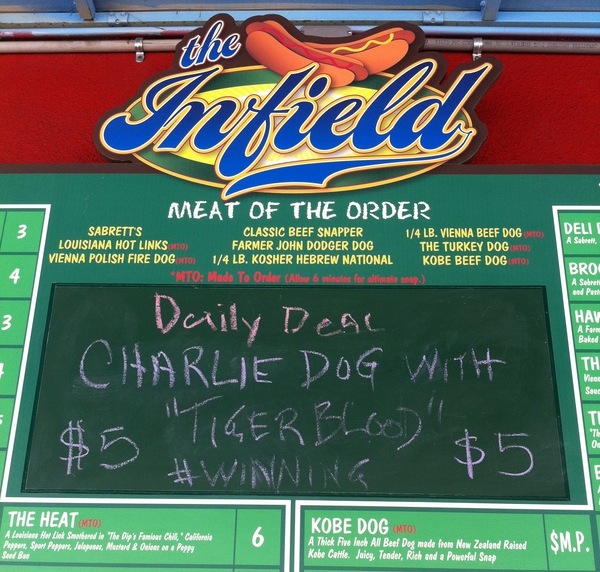 the
Infield
MEAT OF THE ORDER
SABRETT'S
LOUISIANA HOT LINKS (MTO)
VIENNA POLISH FIRE DOG (MTO)
CLASSIC BEEF SNAPPER
FARMER JOHN DODGER DOG
1/4 LB. KOSHER HEBREW NATIONAL
1/4 LB. VIENNA BEEF DOG (MTO)
THE TURKEY DOG (MTO)
KOBE BEEF DOG (MTO)
*MTO: Made To Order (Allow 6 minutes for ultimate snap.)
Daily Deal
CHARLIE DOG WITH
"TIGER BLOOD"
$5 $5
#WINNING
3
4
3
THE HEAT (MTO)
A Louisiana Hot Link Smothered in "The Dip's Famous Chili," California
Peppers, Sport Peppers, Jalapenos, Mustard & Onions on a Poppy
Seed Bun
6
KOBE DOG (MTO)
A Thick Five Inch All Beef Dog made from New Zealand Raised
Kobe Cattle. Juicy, Tender, Rich and a Powerful Snap
$M.P.
DELI
A Sabrett,
BRO
A Sabrett
and Past
HAW
A Farm
Baked
TH
Vienn
Sauc